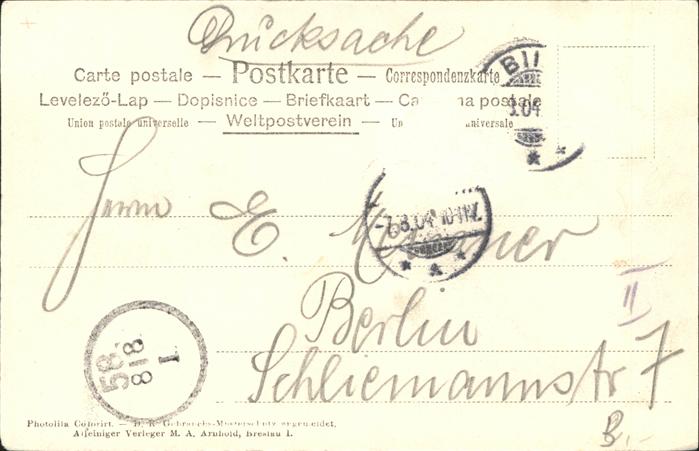 Drucksache
Carte postale — Postkarte — Correspondenzkarte
Levelező-Lap — Dopisnice — Briefkaart — postale
Union postale universelle — Weltpostverein — universale
Herrn E.
Berlin
Schliemannstr 7
II
B.-
BI
.04
-7.8.04 10-11V.
58
8 8
I
Photolita Colorirt. — D. R. Gebrauchs-Musterschutz angemeldet,
Alleiniger Verleger M. A. Arnhold, Breslau I.